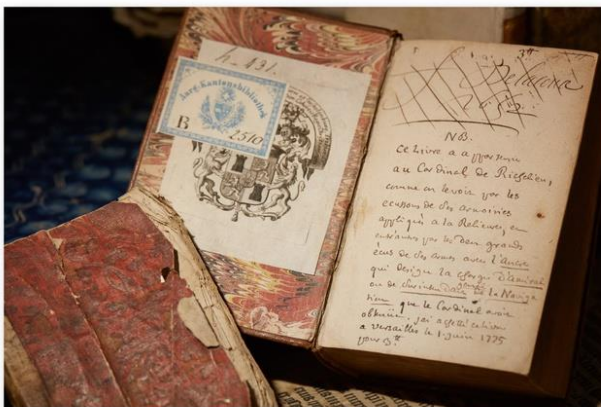 h-131.
Aarg. Kantonsbibliothek
B
2510
3tt
1652
NB.
Ce Livre a appartenu
au Cardinal de Richelieu,
comme on le voit par les
ecussons de ses armoiries
appliqués a la Relieure,
par les deux grands
de ses armes avec l'Ancre
qui designe la charge D'amiral
ou de Surintendant de la Naviga
tion que le Cardinal avoit
obtenüe. j'ai acheté ce livre
a versailles le 1 juin 1775
pour 3tt